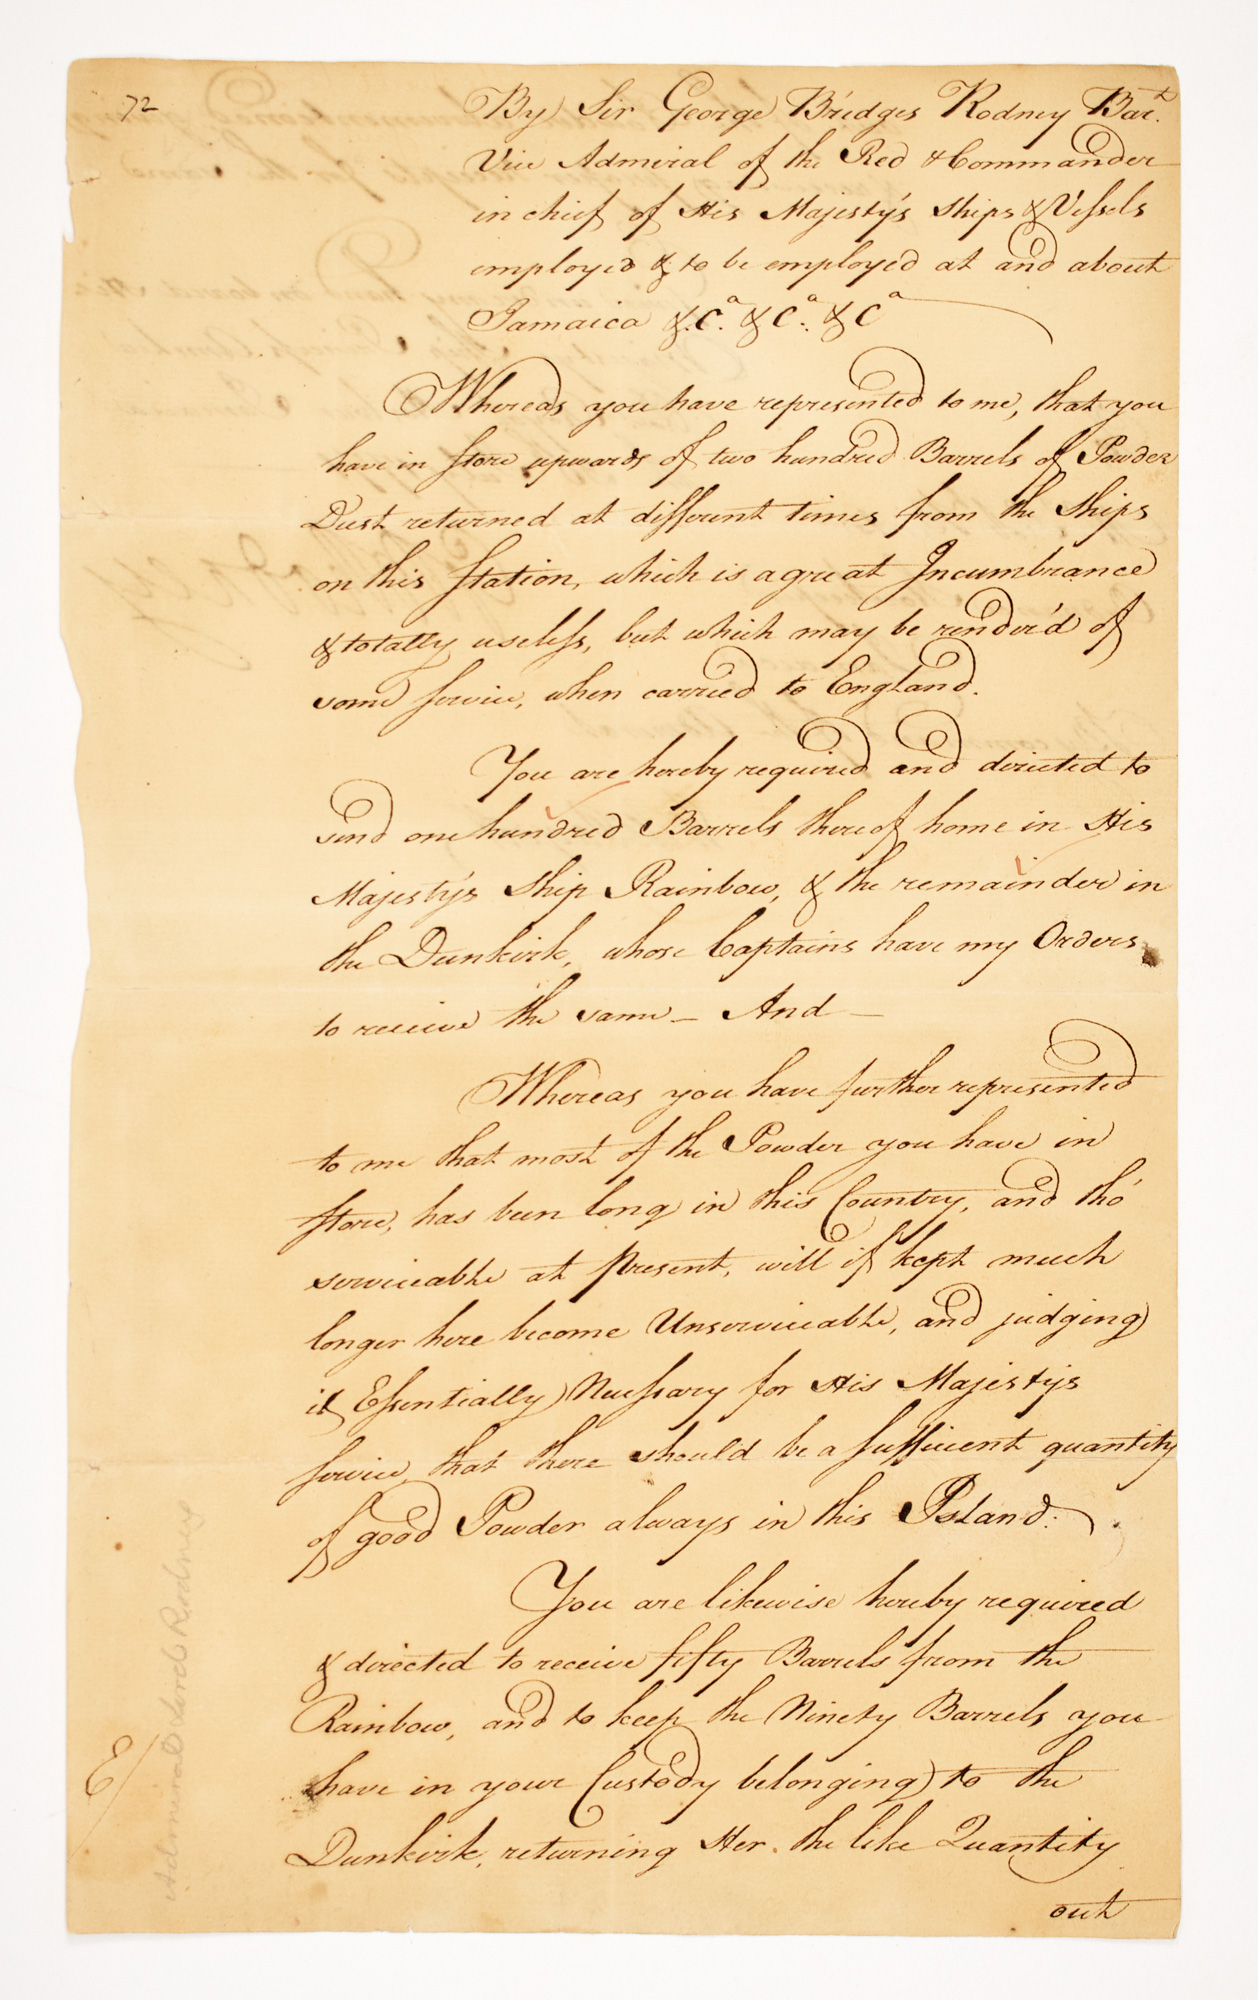 72
By Sir George Bridges Rodney Bar.t
Vice Admiral of the Red & Commander
in chief of His Majesty's Ships & Vessels
employed & to be employed at and about
Jamaica &.C.a &C.a &Ca
Whereas you have represented to me, that you
have in Store upwards of two hundred Barrels of Powder
Dust returned at different times from the Ships
on this Station, which is a great Incumbrance
& totally useless, but which may be render'd of
some Service, when carried to England.
You are hereby required and directed to
send one hundred Barrels thereof home in His
Majesty's Ship Rainbow, & the remainder in
the Dunkirk, whose Captains have my Orders
to receive the same _ And _
Whereas you have further represented
to me that most of the Powder you have in
Store, has been long in this Country, and tho'
serviceable at present, will if kept much
longer here become Unserviceable, and judging
it Essentially Necessary for His Majestys
Service, that there should be a sufficient quantity
of good Powder always in this Island.
You are likewise hereby required
& directed to receive fifty Barrels from the
Rainbow, and to keep the Ninety Barrels you
have in your Custody belonging to the
Dunkirk, returning Her the like Quantity
out
E/
Admiral Lord Rodney